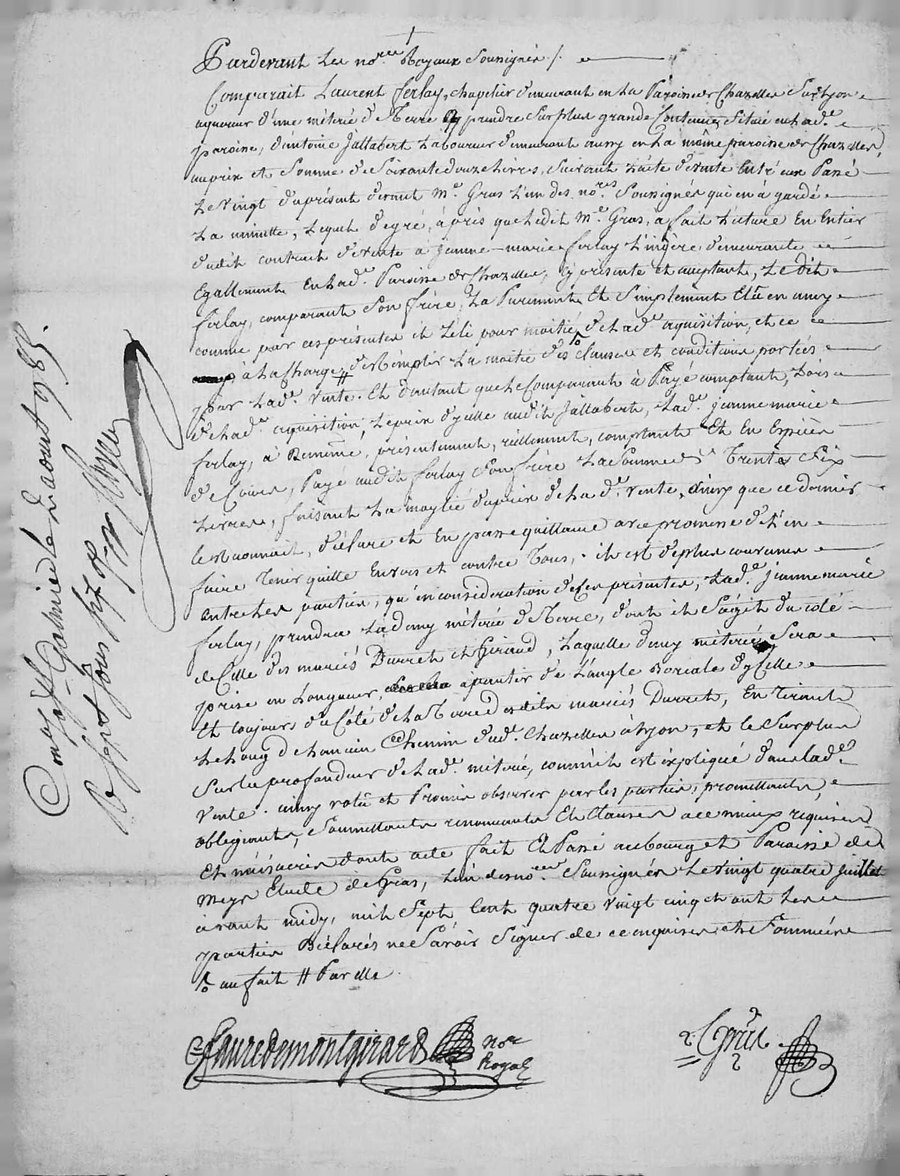 Pardevant les no.res Royaux Soussignés /.
Comparait Laurent ferlay, chapelier demeurant en la Paroisse de Chazelles Sur lyon
aquereur d'une méterée de Terre à prendre Sur plus grande Contenue, Située en lad.e
paroisse, d'antoine Jallabert Laboureur demeurant aussy en la même paroisse de Chazelles,
au prix et Somme de Soixante douze livres, Suivant l'acte de vente Entre eux Passé
Le vingt du présent devant M.e Gras l'un des no.res Soussignés qui en à gardé
La minutte, Lequel de gré, après que ledit M.e Gras, à fait lecture En Entier
dudit contrait de vente a Jeanne-marie ferlay Lingère demeurante
Egallement En lad.e Paroisse de Chazelles, Cy présente et acceptante, Le dit
ferlay, comparant Son frère, La Purement Et Simplement Elû en amy
comme par ces présentes il l'élit pour moitié de lad.e aquisition, et ce
à la charge # de Remplir La moitié des clauses et conditions portées
par lad.e vente. Et d'autant que le Comparant à Payé comptant, Lors
de lad.e aquisition, Le prix d'ycelle audit Jallabert, Lad.e jeanne marie
ferlay, a présentement, réellement, comptant Et En Espèces
de Cours, Payé audit ferlay Son frère La Somme de Trente Six
Livres, faisant La moytié du prix de lad.e vente, ainsy que ce dernier
le reconnait, déclare et En passe quittance avec promesse de l'en
faire Tenir quitte Envers et contre Tous; il est de plus convenu
entre les parties, qu'en considération des présentes, Lad.e jeanne marie
ferlay, prendra La demy méterée de Terre, dont il S'agit du coté
de Celle des mariés Durret et Giraud, Laquelle demy méterée Sera
prise en Longueur, à partir de L'angle Boréale d'ycelle
Et toujours du Côté de la Terre desdits mariés Durret, En Tirant
Le Long de l'ancien Chemin dud. Chazelles à lyon, et le Surplus
Sur la profondeur de lad.e méterée, comme il est éxpliqué dans lad.e
vente. ainsy voulu et Promis observer par les parties, promettants,
obligeants, Soumettants renonceants Et Clauses a ce mieux requises
Et nécessaires dont acte fait Et Passé au bourg et Paroisse de
Meys Etude de Gras, L'un des no.res Soussignés Le vingt quatre juillet
avant midy, mil Sept Cent quatre vingt cinq et ont Les
parties Déclarés ne Savoir Signer de ce enquises et Sommées
au fait # Par elle
Fauredemontgirard no.re
Royal
Gras
Con.lé
à St Galmier le 2 aout 1785.
R.